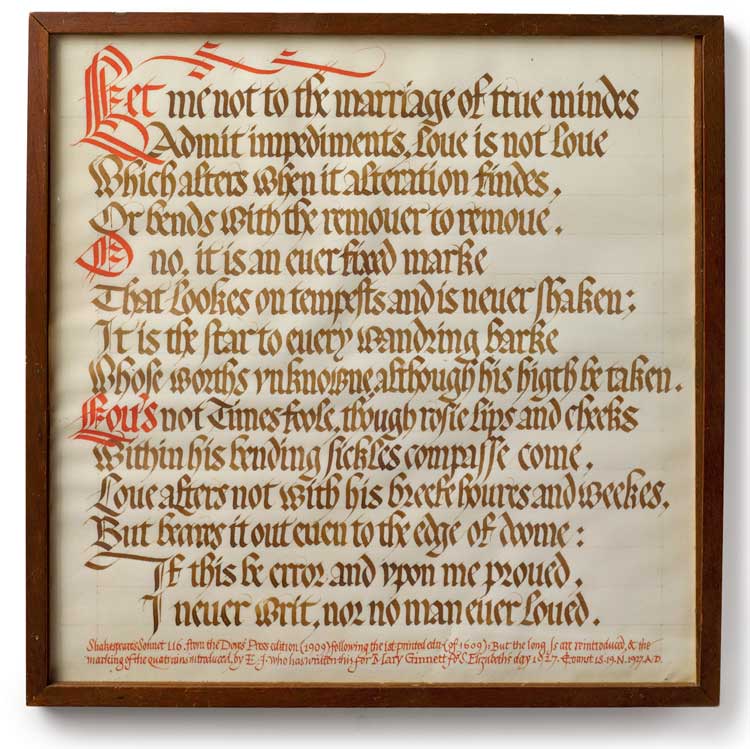 Let me not to the marriage of true mindes
Admit impediments, Loue is not Loue
Which alters when it alteration findes,
Or bends with the remouer to remoue.
O no, it is an euer fixed marke
That lookes on tempeſts and is neuer ſhaken;
It is the ſtar to euery wandring barke
Whoſe worths vnknowne although his higth be taken.
Lou's not Times foole, though roſie lips and cheeks
Within his bending ſickles compaſſe come,
Loue alters not with his breefe houres and weekes,
But beares it out euen to the edge of doome:
If this be error and vpon me proued,
I neuer writ, nor no man euer loued.
Shakespeare's Sonnet 116, from the Doves Press edition (1909) following the 1st printed edn. (of 1609): But the long ſs are reintroduced, & the
marking of the quatrains introduced, by E.J. who has written this for Mary Ginnett for S. Elizabeth's day 1927. 19.N. 1927 A.D.